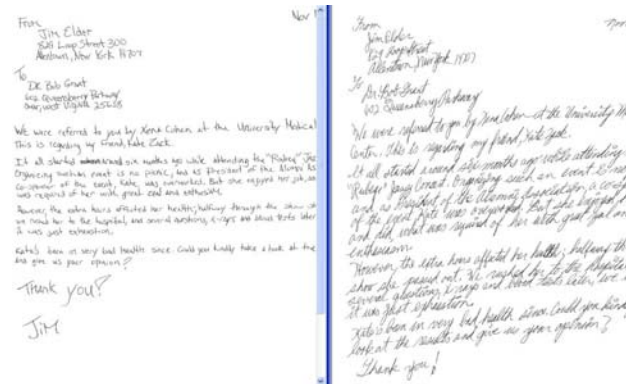 From
Jim Elder
829 Loop Street 300
Allentown, New York 14707
To
Dr. Bob Grant
602 Queensberry Parkway
Omar, West Virginia 25638
We were referred to you by Xena Cohen at the University Medical
This is regarding my friend, Kate Zack.
It all started around six months ago while attending the "Rubeq" Jazz
Organizing such an event is no picnic, and as President of the Alumni
co-sponsor of the event, Kate was overworked. But she enjoyed her job, and
was required of her with great zeal and enthusiasm.
However, the extra hours affected her health; halfway through the show
we rushed her to the hospital, and several questions, x-rays and blood tests later
it was just exhaustion.
Kate's been in very bad health since. Could you kindly take a look at the
and give us your opinion?
Thank you!
Jim
Nov 1
From
Jim Elder
829 Loop Street
Allentown, New York 14707
To
Dr Bob Grant
602 Queensberry Parkway
We were referred to you by Xena Cohen at the University
Center. This is regarding my friend, Kate Zack.
It all started around six months ago while attending
"Rubeq" Jazz Concert. Organizing such an event is no
and as President of the Alumni Association, a co-
of the event, Kate was overworked. But she enjoyed
and did what was required of her with great zeal and
enthusiasm
However, the extra hours affected her health; halfway th
show she passed out. We rushed her to the hospital
several questions, x-rays and blood tests later, we
it was just exhaustion.
Kate's been in very bad health since. Could you kind
look at the results and give us your opinion?
Thank you!